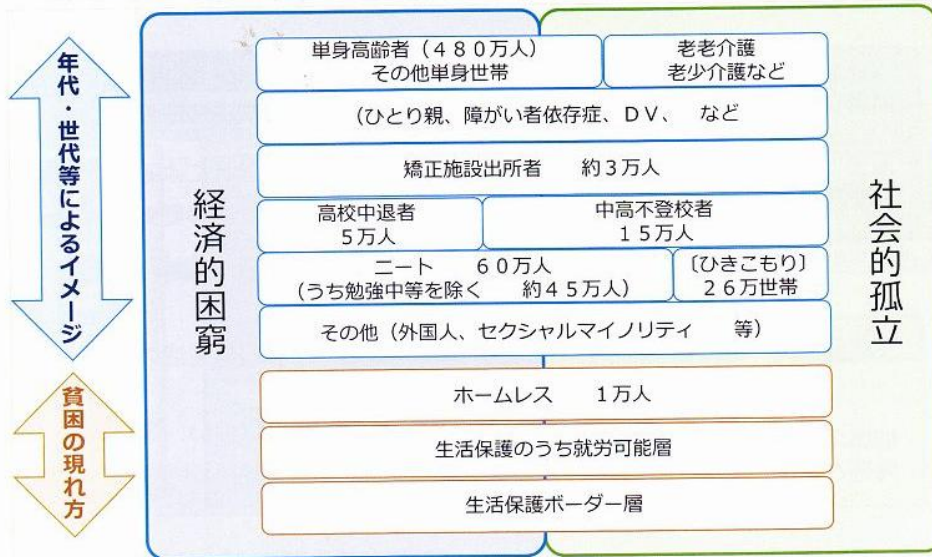 年代・世代等によるイメージ
貧困の現れ方
経済的困窮
社会的孤立
単身高齢者（４８０万人）
その他単身世帯
老老介護
老少介護など
（ひとり親、障がい者依存症、ＤＶ、　など
矯正施設出所者　　約３万人
高校中退者
５万人
中高不登校者
１５万人
ニート　　６０万人
（うち勉強中等を除く　　約４５万人）
〔ひきこもり〕
２６万世帯
その他（外国人、セクシャルマイノリティ　　等）
ホームレス　　１万人
生活保護のうち就労可能層
生活保護ボーダー層